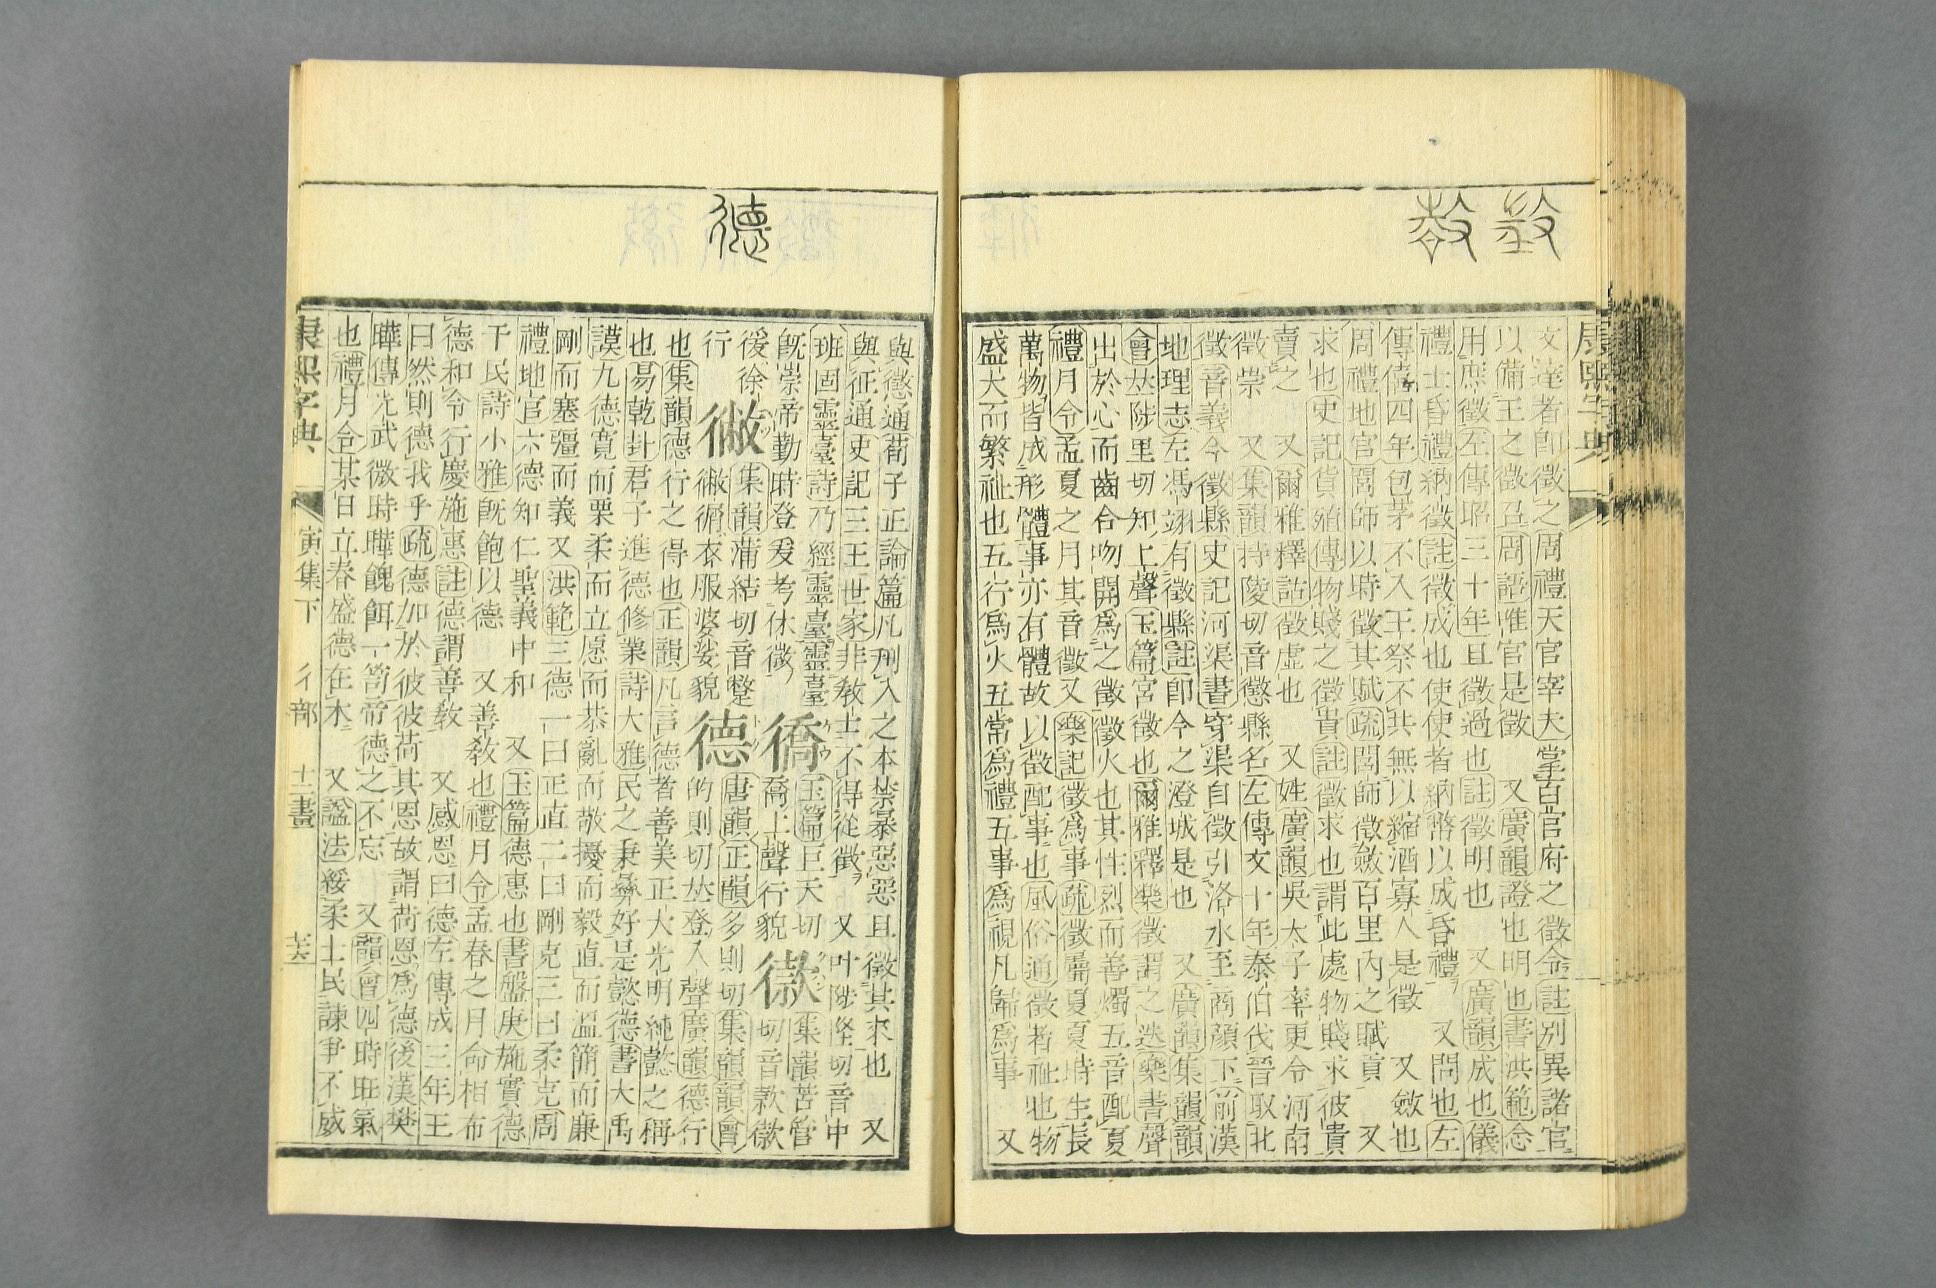 康熙字典
文達者卽徵之周禮天官宰夫掌百官府之徵令註別異諸官
以備王之徵召周語唯官是徵 又廣韻證也明也書洪範念
用庶徵左傳昭三十年且徵過也註徵明也 又廣韻成也儀
禮士昏禮納徵註徵成也使使者納幣以成昏禮 又問也左
傳僖四年包茅不入王祭不共無以縮酒寡人是徵 又斂也
周禮地官閭師以時徵其賦疏閭師徵斂百里內之賦貢 又
求也史記貨殖傳物賤之徵貴註徵求也謂此處物賤求彼貴
賣之 又爾雅釋詁徵虛也 又姓廣韻吳太子率更令河南
徵崇 又集韻持陵切音懲縣名左傳文十年秦伯伐晉取北
徵音義今徵縣史記河渠書穿渠自徵引洛水至商顏下前漢
地理志左馮翊有徵縣註卽今之澄城是也 又廣韻集韻韻
會𠀤陟里切知上聲玉篇宮徵也爾雅釋樂徵謂之迭樂書聲
出於心而齒合吻開爲之徵徵火也其性烈而善燭五音配夏
禮月令孟夏之月其音徵又樂記徵爲事疏徵屬夏夏時生長
萬物皆成形體事亦有體故以徵配事也風俗通徵者祉也物
盛大而繁祉也五行爲火五常爲禮五事爲視凡歸爲事 又
德
與懲通荀子正論篇凡刑人之本禁暴惡惡且徵其未也 又
與征通史記三王世家非敎士不得從徵 又叶陟隆切音中
班固靈臺詩乃經靈臺靈臺
旣崇帝勤時登爰考休徵
玉篇巨夭切
喬上聲行貌
集韻苦管
切音款
後徐
行
徶
集韻蒲結切音蹩
徶㣯衣服婆娑貌
德
唐韻正韻多則切集韻韻會
的則切𠀤登入聲廣韻德行
也集韻德行之得也正韻凡言德者善美正大光明純懿之稱
也易乾卦君子進德修業詩大雅民之秉彝好是懿德書大禹
謨九德寬而栗柔而立愿而恭亂而敬擾而毅直而溫簡而廉
剛而塞彊而義又洪範三德一曰正直二曰剛克三曰柔克周
禮地官六德知仁聖義中和 又玉篇德惠也書盤庚施實德
于民詩小雅旣飽以德 又善敎也禮月令孟春之月命相布
德和令行慶施惠註德謂善敎 又感恩曰德左傳成三年王
曰然則德我乎疏德加於彼彼荷其恩故謂荷恩爲德後漢樊
曄傳光武微時曄餽餌一笥帝德之不忘 又韻會四時旺氣
也禮月令某日立春盛德在木 又謚法綏柔士民諫爭不威
康熙字典 寅集下 彳部 十二畫